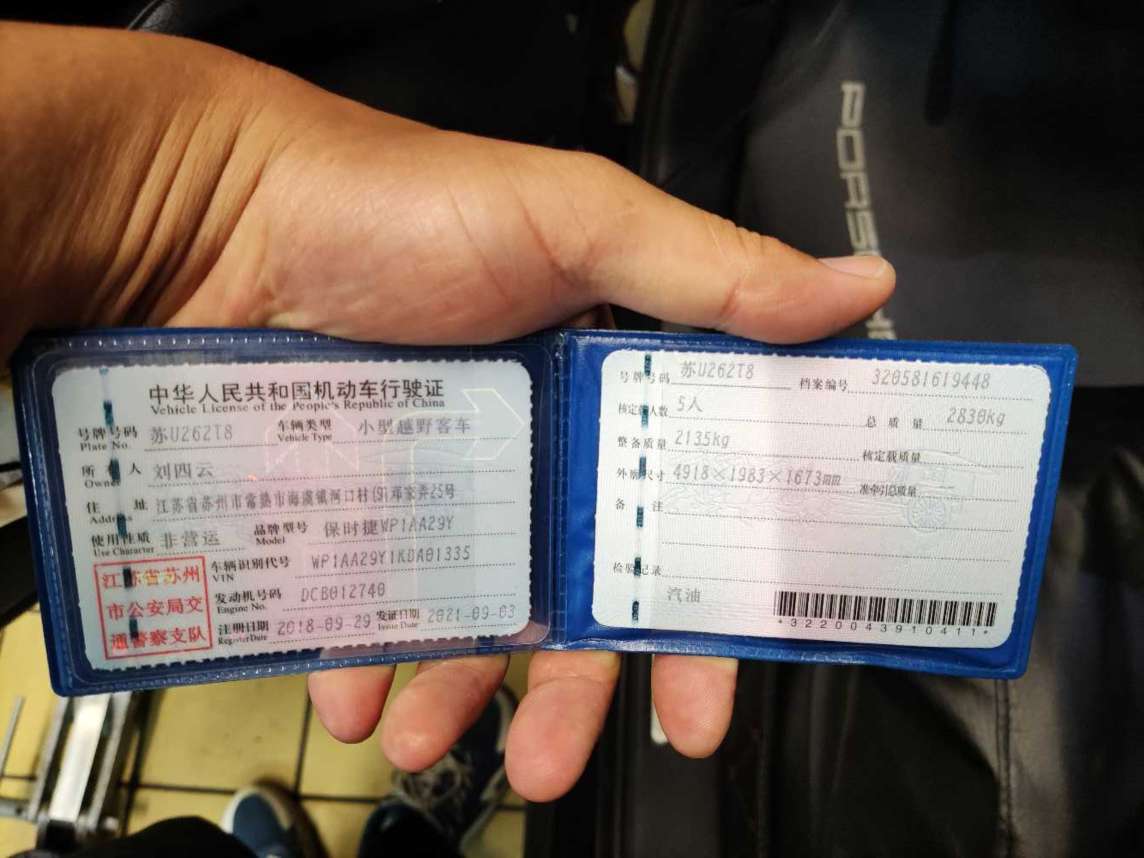 中华人民共和国机动车行驶证
Vehicle License of the People's Republic of China
号牌号码 苏U262T8 车辆类型 小型越野客车
Plate No. Vehicle Type
所有人 刘四云
Owner
住址 江苏省苏州市常熟市海虞镇河口村(9)邓家弄25号
Address
使用性质 非营运 品牌型号 保时捷WP1AA29Y
Use Character Model
江苏省苏州
市公安局交
通警察支队
车辆识别代号 WP1AA29Y1KDA01335
VIN
发动机号码 DCB012740
Engine No.
注册日期 2018-09-29 发证日期 2021-09-03
Register Date Issue Date
号牌号码 苏U262T8 档案编号 320581619448
核定载人数 5人 总质量 2830kg
整备质量 2135kg 核定载质量
外廓尺寸 4918×1983×1673mm 准牵引总质量
备注
检验记录
汽油
*3220043910411*
PORSCHE